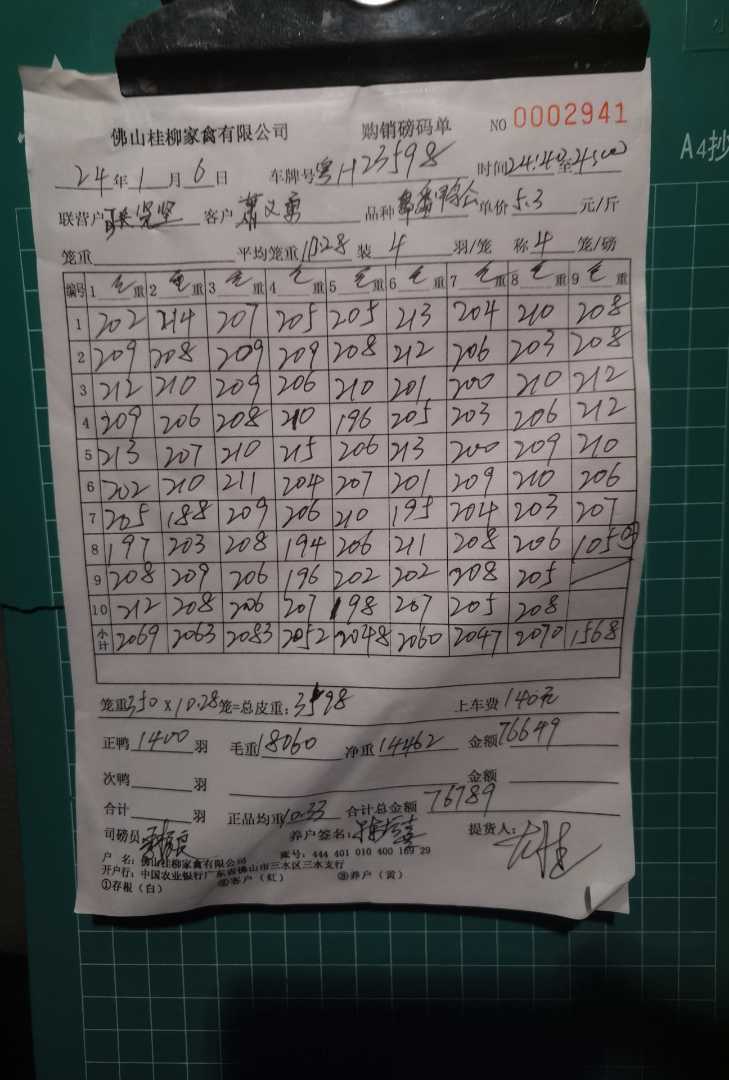 佛山桂柳家禽有限公司 购销磅码单 NO 0002941
24年1月6日 车牌号粤H23598 时间24:40至4500
联营户 客户萧义勇 品种 单价5.3元/斤
笼重 平均笼重10.28 装4羽/笼 称4笼/磅
编号 1毛重 2毛重 3毛重 4毛重 5毛重 6毛重 7毛重 8毛重 9毛重
1 202 214 207 205 205 213 204 210 208
2 209 208 209 209 208 212 206 203 208
3 212 210 209 206 210 201 200 210 212
4 209 206 208 210 196 205 203 206 212
5 213 207 210 215 206 213 200 209 210
6 202 210 211 204 207 201 209 210 206
7 205 188 209 206 210 195 204 203 207
8 197 203 208 194 206 211 208 206 105
9 208 209 206 196 202 202 208 205
10 212 208 206 207 198 207 205 208
小计 2069 2063 2083 2052 2048 2060 2047 2070 1568
笼重350×10.28笼=总皮重:3598 上车费140元
正鸭1400羽 毛重18060 净重14462 金额76649
次鸭 羽 金额
合计 羽 正品均重10.33 合计总金额76789
司磅员: 养户签名: 提货人:
户 名:佛山桂柳家禽有限公司 账号:444 401 010 400 169 29
开户行:中国农业银行广东省佛山市三水区三水支行
①存根(白) ②客户(红) ③养户(黄)
A4抄